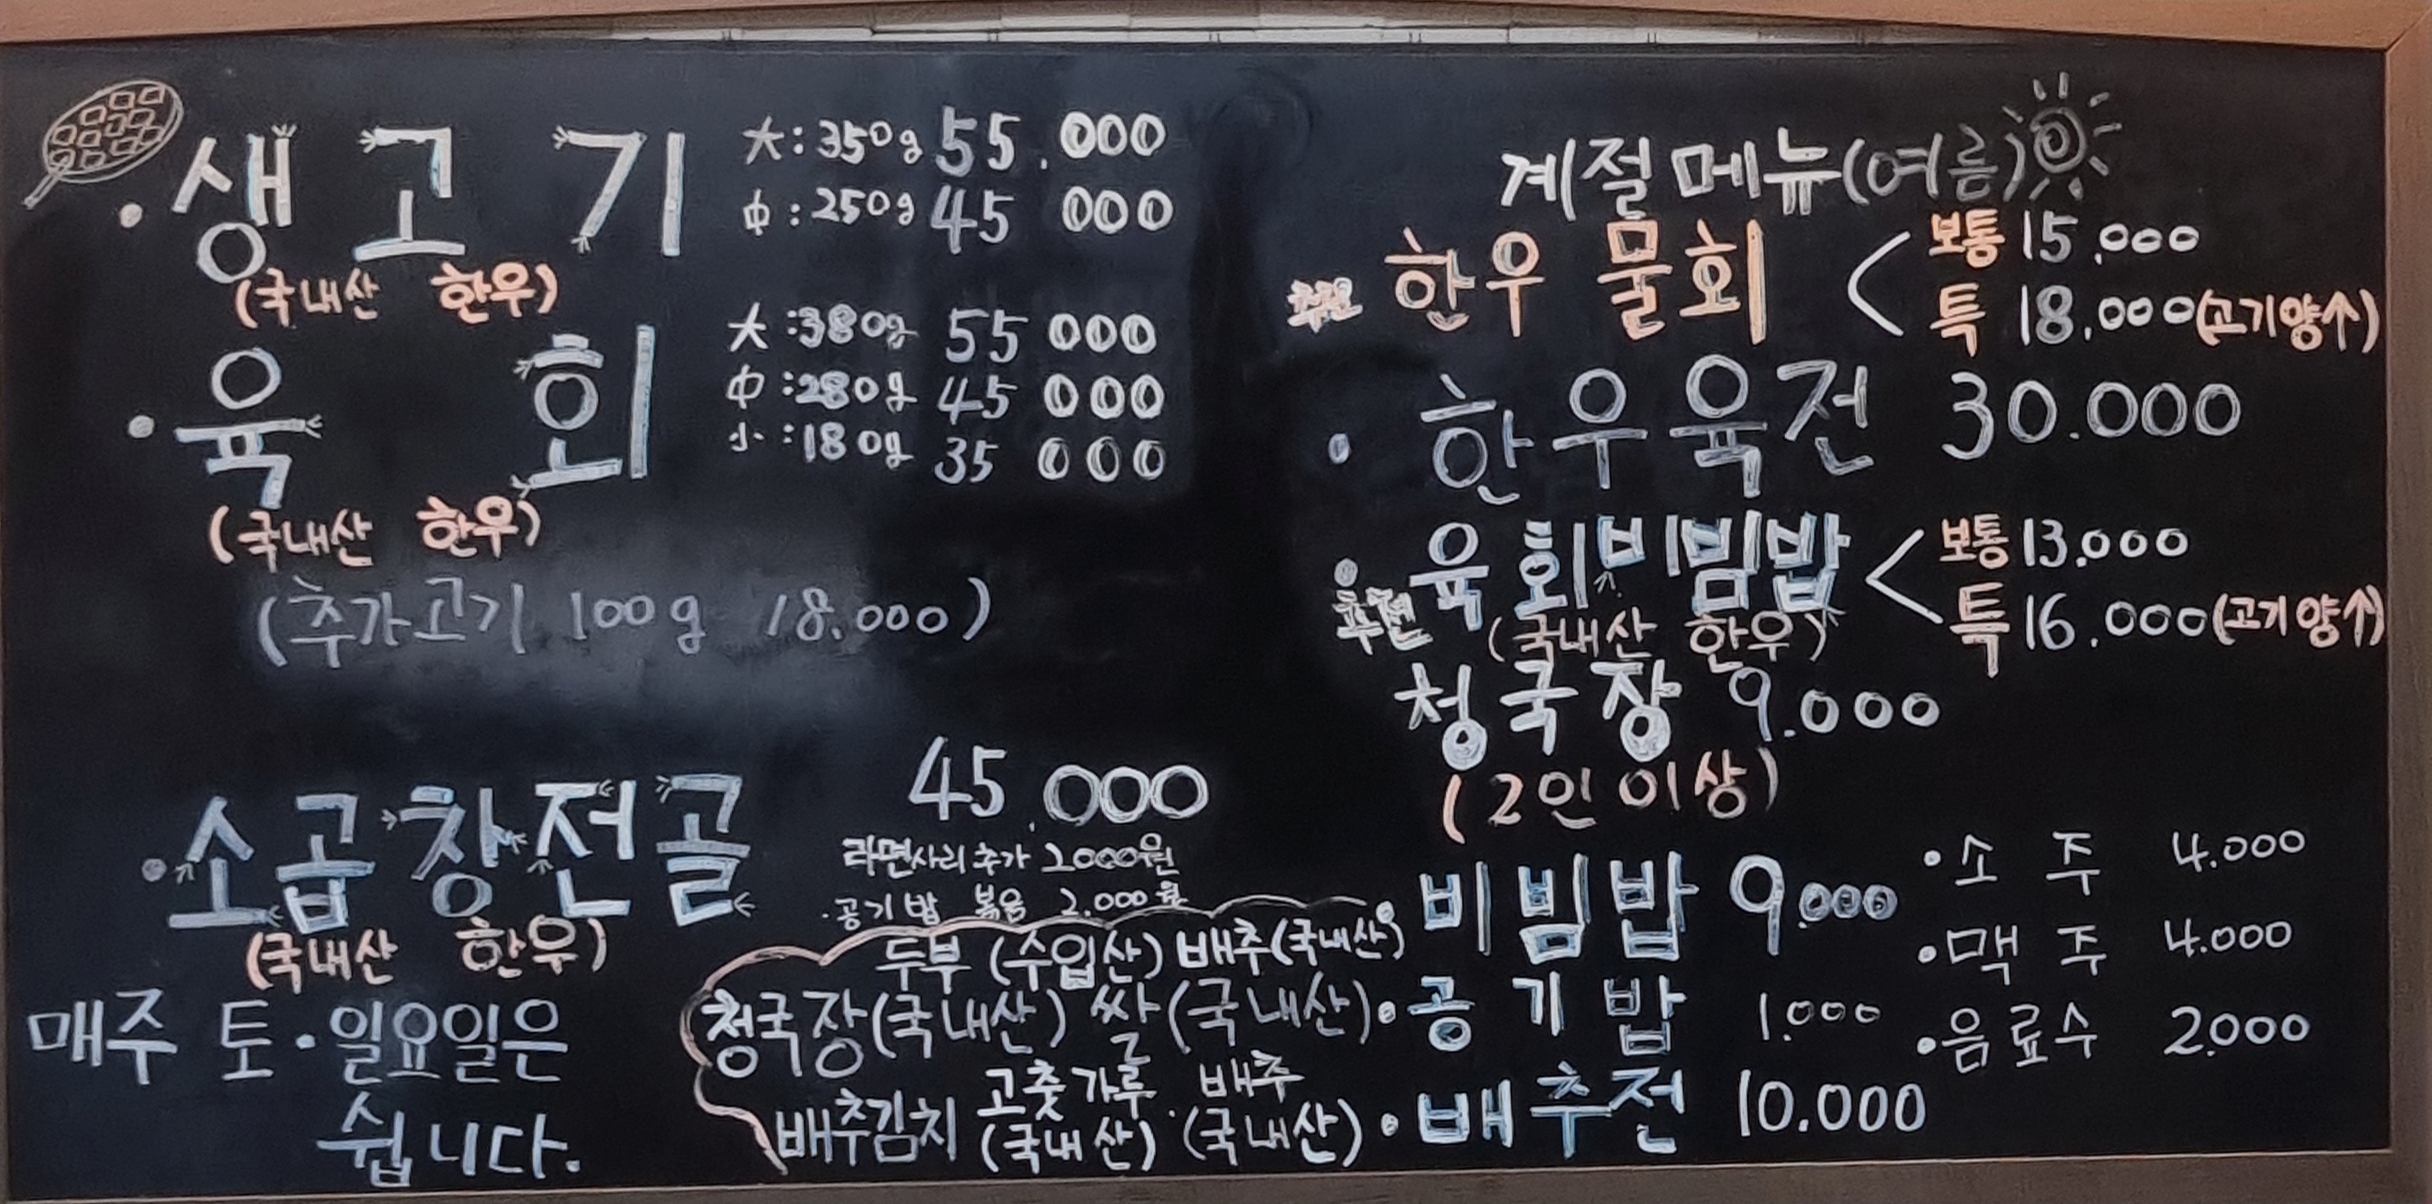 ·생고기 大:350g 55.000
中:250g 45 000
(국내산 한우)
·육회 大:380g 55 000
中:280g 45 000
小:180g 35 000
(국내산 한우)
(추가고기 100g 18.000)
·소곱창전골 45.000
(국내산 한우)
라면사리 추가 2000원
·공기밥 볶음 2.000원
매주 토·일요일은
쉽니다.
두부 (수입산) 배추(국내산)
청국장(국내산) 쌀(국내산)
배추김치 고춧가루(국내산)·배추(국내산)
계절메뉴(여름)
추천 한우 물회 < 보통 15.000
특 18.000(고기양↑)
·한우육전 30.000
·추천 육회비빔밥 < 보통 13.000
(국내산 한우) 특 16.000(고기양↑)
청국장 9.000
(2인 이상)
·비빔밥 9.000
·공기밥 1.000
·배추전 10.000
·소주 4.000
·맥주 4.000
·음료수 2.000